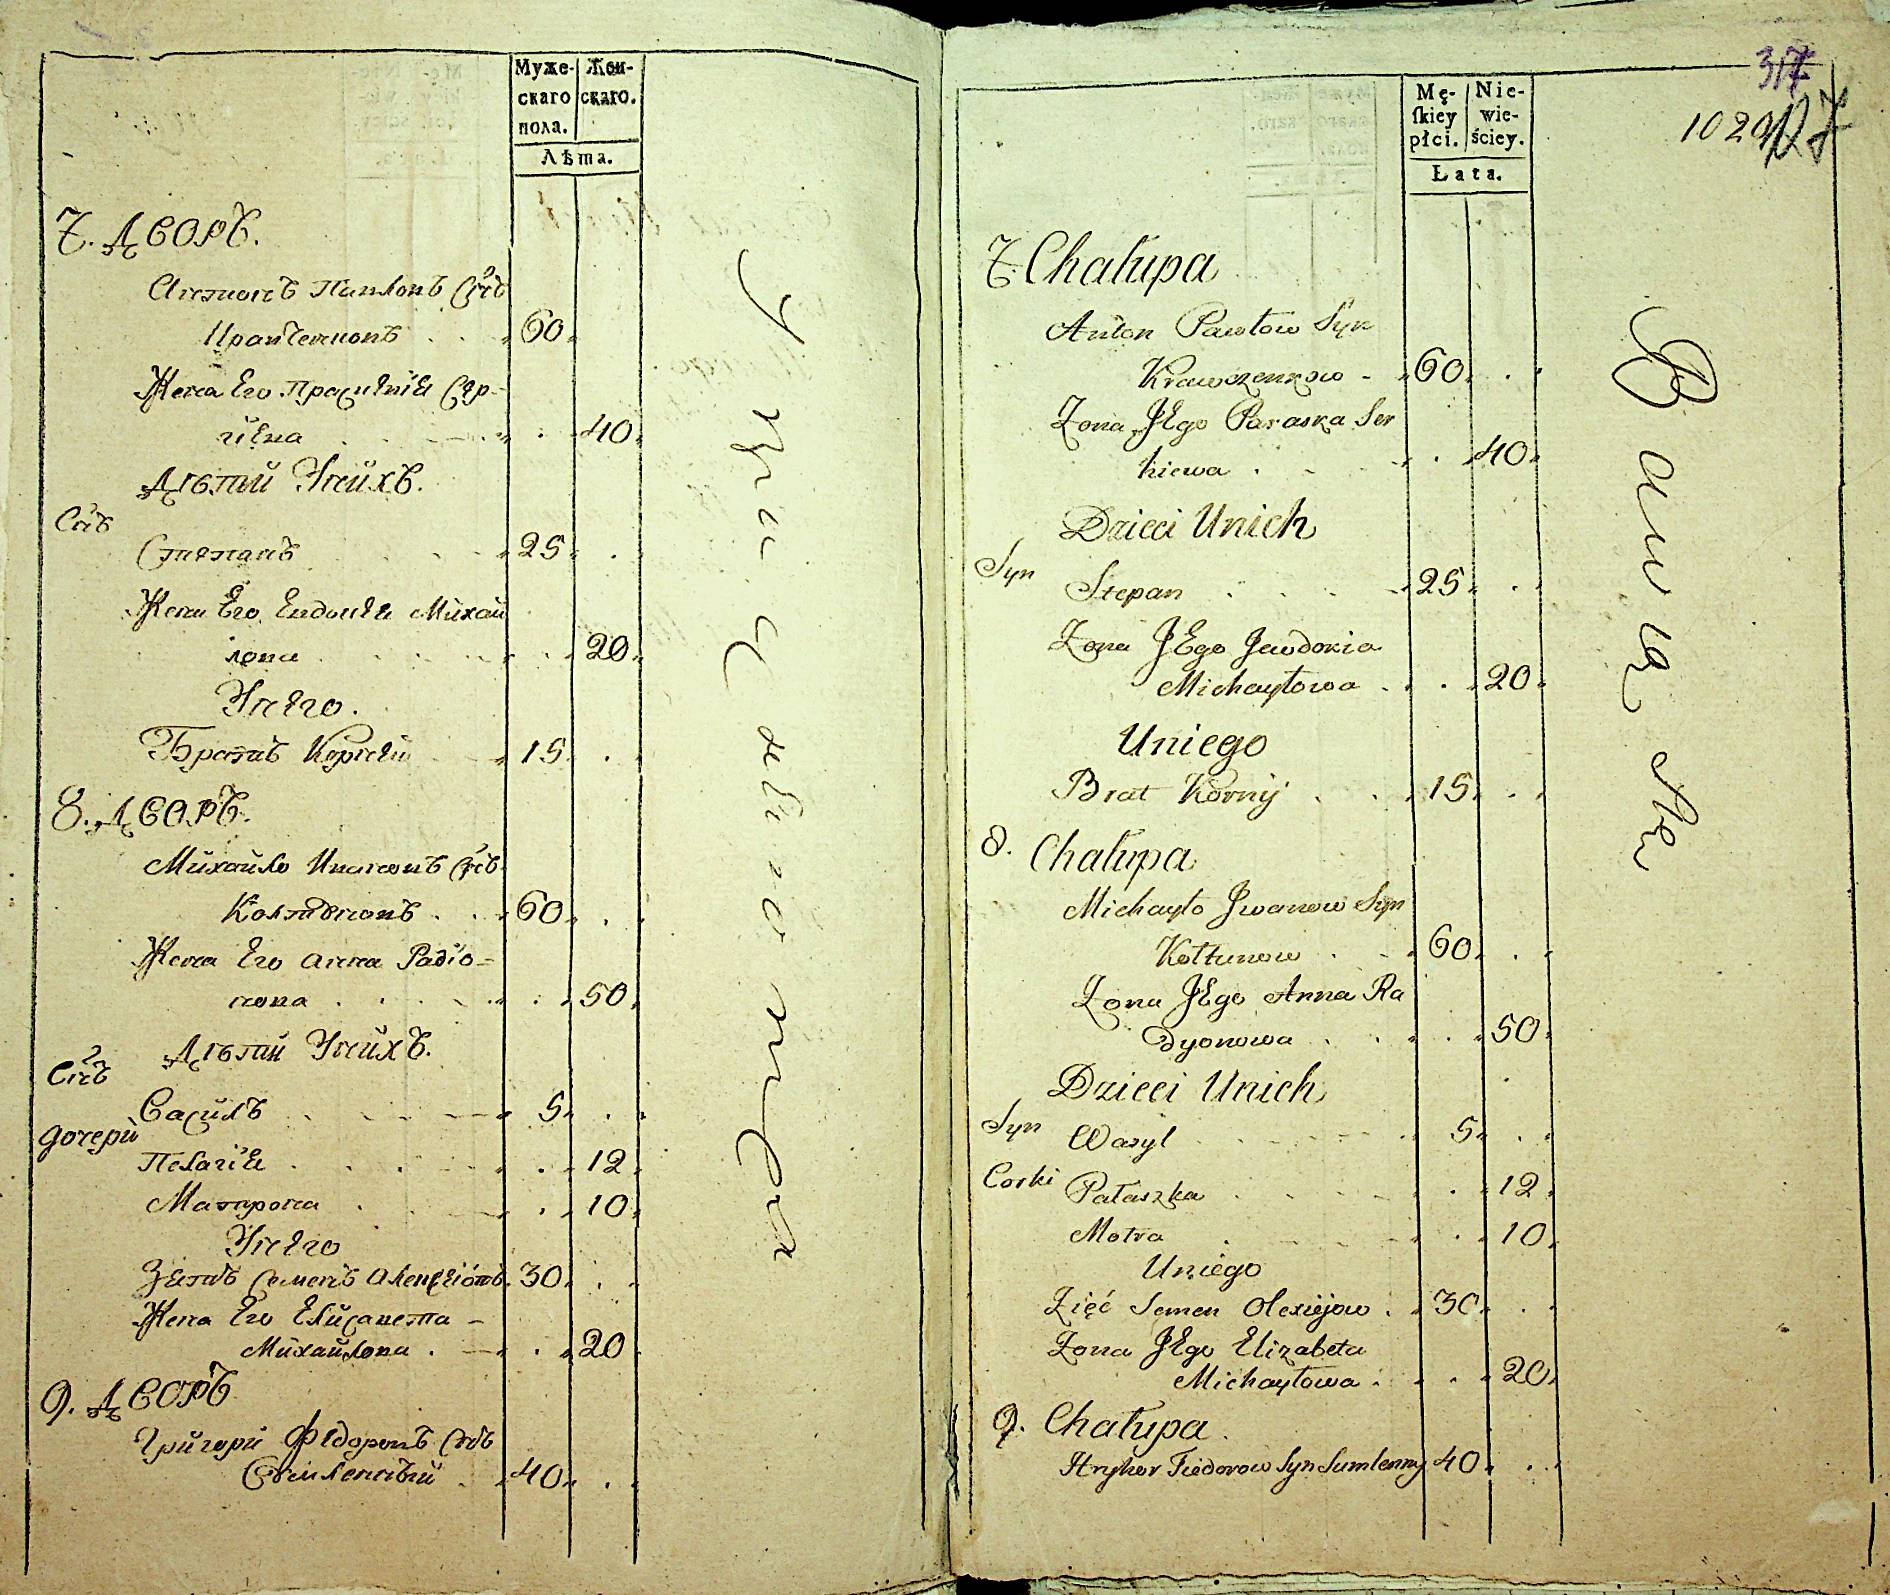 Муже- Жен-
скаго скаго.
пола.
Лѣта.
7. Дворъ.
Антонъ Павловъ Снъ
Кравченковъ 60
Жена Его Прасковія Сер-
гіева 40
Дѣтей Унихъ.
Снъ
Степанъ 25
Жена Его Евдокія Михай
лова 20
Унего.
Братъ Корней 15
8. Дворъ.
Михайло Ивановъ Снъ
Колтуновъ 60
Жена Его Анна Радіо-
нова 50
Дѣтей Унихъ.
Снъ
Василь 5
дочери
Пелагія 12
Матрона 10
Унего
Зять Семенъ Алексіовъ 30
Жена Его Елисавета
Михайлова 20
9. Дворъ
Григорій Федоровъ Снъ
Сумленный 40
317
Mę- Nie-
skiey wie-
płci. ściey.
Łata.
7. Chałupa
Anton Pawłow Syn
Krawczenkow - 60
Zona JEgo Paraska Ser
hiewa 40
Dzieci Unich
Syn Stepan 25
Zona JEgo Jewdokia
Michayłowa 20
Uniego
Brat Kornij 15
8. Chałupa
Michayło Jwanow Syn
Kołtunow 60
Zona JEgo Anna Ra
dyonowa 50
Dzieci Unich
Syn Wasyl 5
Corki Pałaszka 12
Motra 10
Uniego
Zięć Semen Olexiejow 30
Zona JEgo Elizabeta
Michayłowa 20
9. Chałupa
Hryhor Fiedorow Syn Sumlenny 40